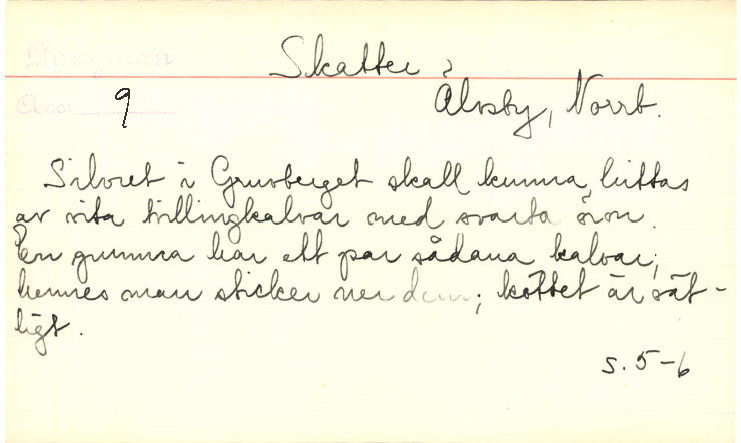 Ljungman
Skatter
Acc. 9
Älvsby, Norrb.
Silvret i Gruvberget skall kunna hittas
av vita tvillingkalvar med svarta öron.
En gumma har ett par sådana kalvar;
hennes man sticker ner dem; köttet är oät-
ligt.
s. 5-6